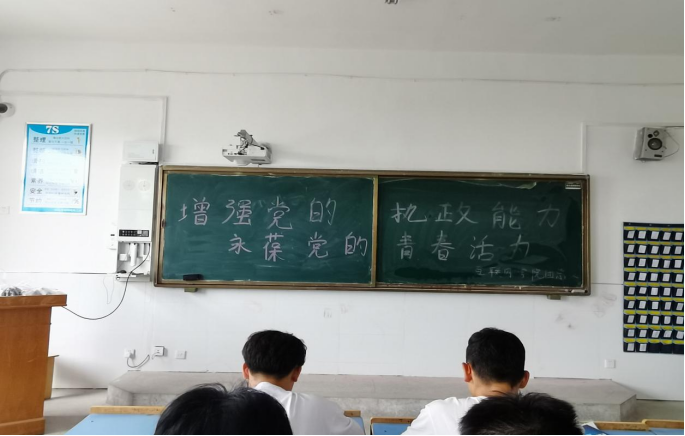 7S
整理
安全
增强党的 执政能力
永葆党的 青春活力